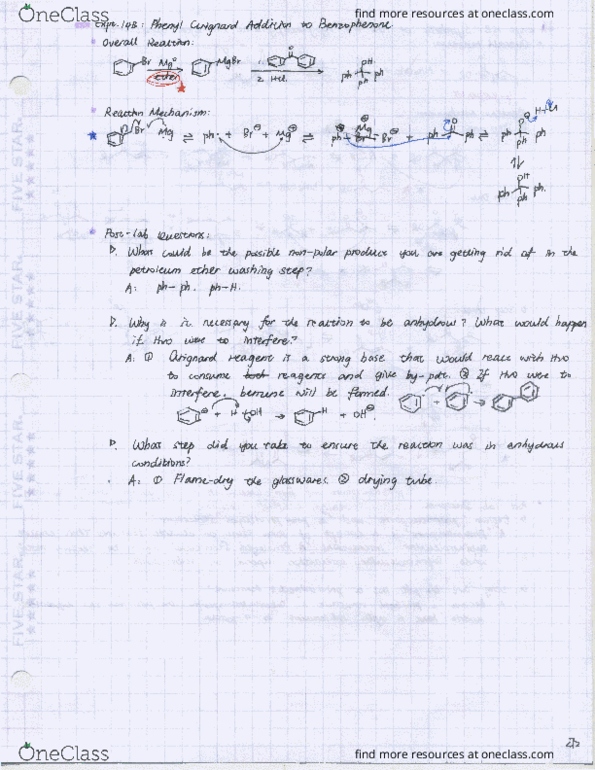 OneClass
find more resources at oneclass.com
Expt. 14B: Phenyl Grignard Addition to Benzophenone.
Overall Reaction:
Br Mg⁰ MgBr 1. O OH
ether 2. HCl ph ph ph
Reaction Mechanism:
Br Mg ⇌ ph· + Br⊖ + Mg⊕ ⇌ ph Mg Br⊖ + ph O ph ⇌ ph ph ph H
OH
ph ph ph.
Post-lab Questions:
What could be the possible non-polar product you are getting rid of in the
petroleum ether washing step?
A: ph-ph. ph-H.
Why is it necessary for the reaction to be anhydrous? What would happen
if H2O were to interfere?
A: ① Grignard reagent is a strong base that would react with H2O
to consume reagents and give by-pdt. ② If H2O were to
interfere, benzene will be formed.
+ H OH → H + OH⊖ + →
What step did you take to ensure the reaction was in anhydrous
conditions?
A: ① Flame-dry the glasswares ② drying tube.
FIVE STAR.
FIVE STAR.
FIVE STAR.
FIVE STAR.
2/2
OneClass
find more resources at oneclass.com